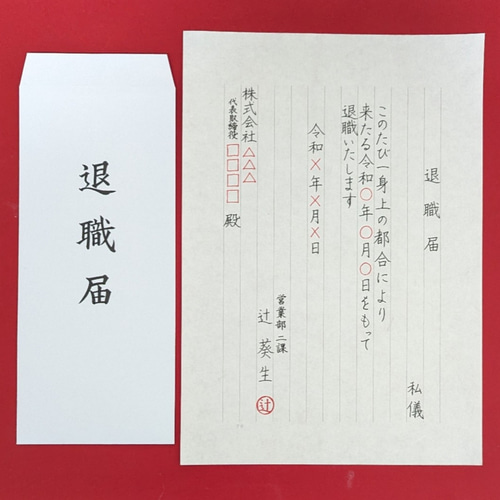 退職届
退職届
私儀
このたび一身上の都合により
来たる令和〇年〇月〇日をもって
退職いたします
令和×年×月×日
営業部二課
辻葵生
辻
株式会社△△△
代表取締役□□□□殿